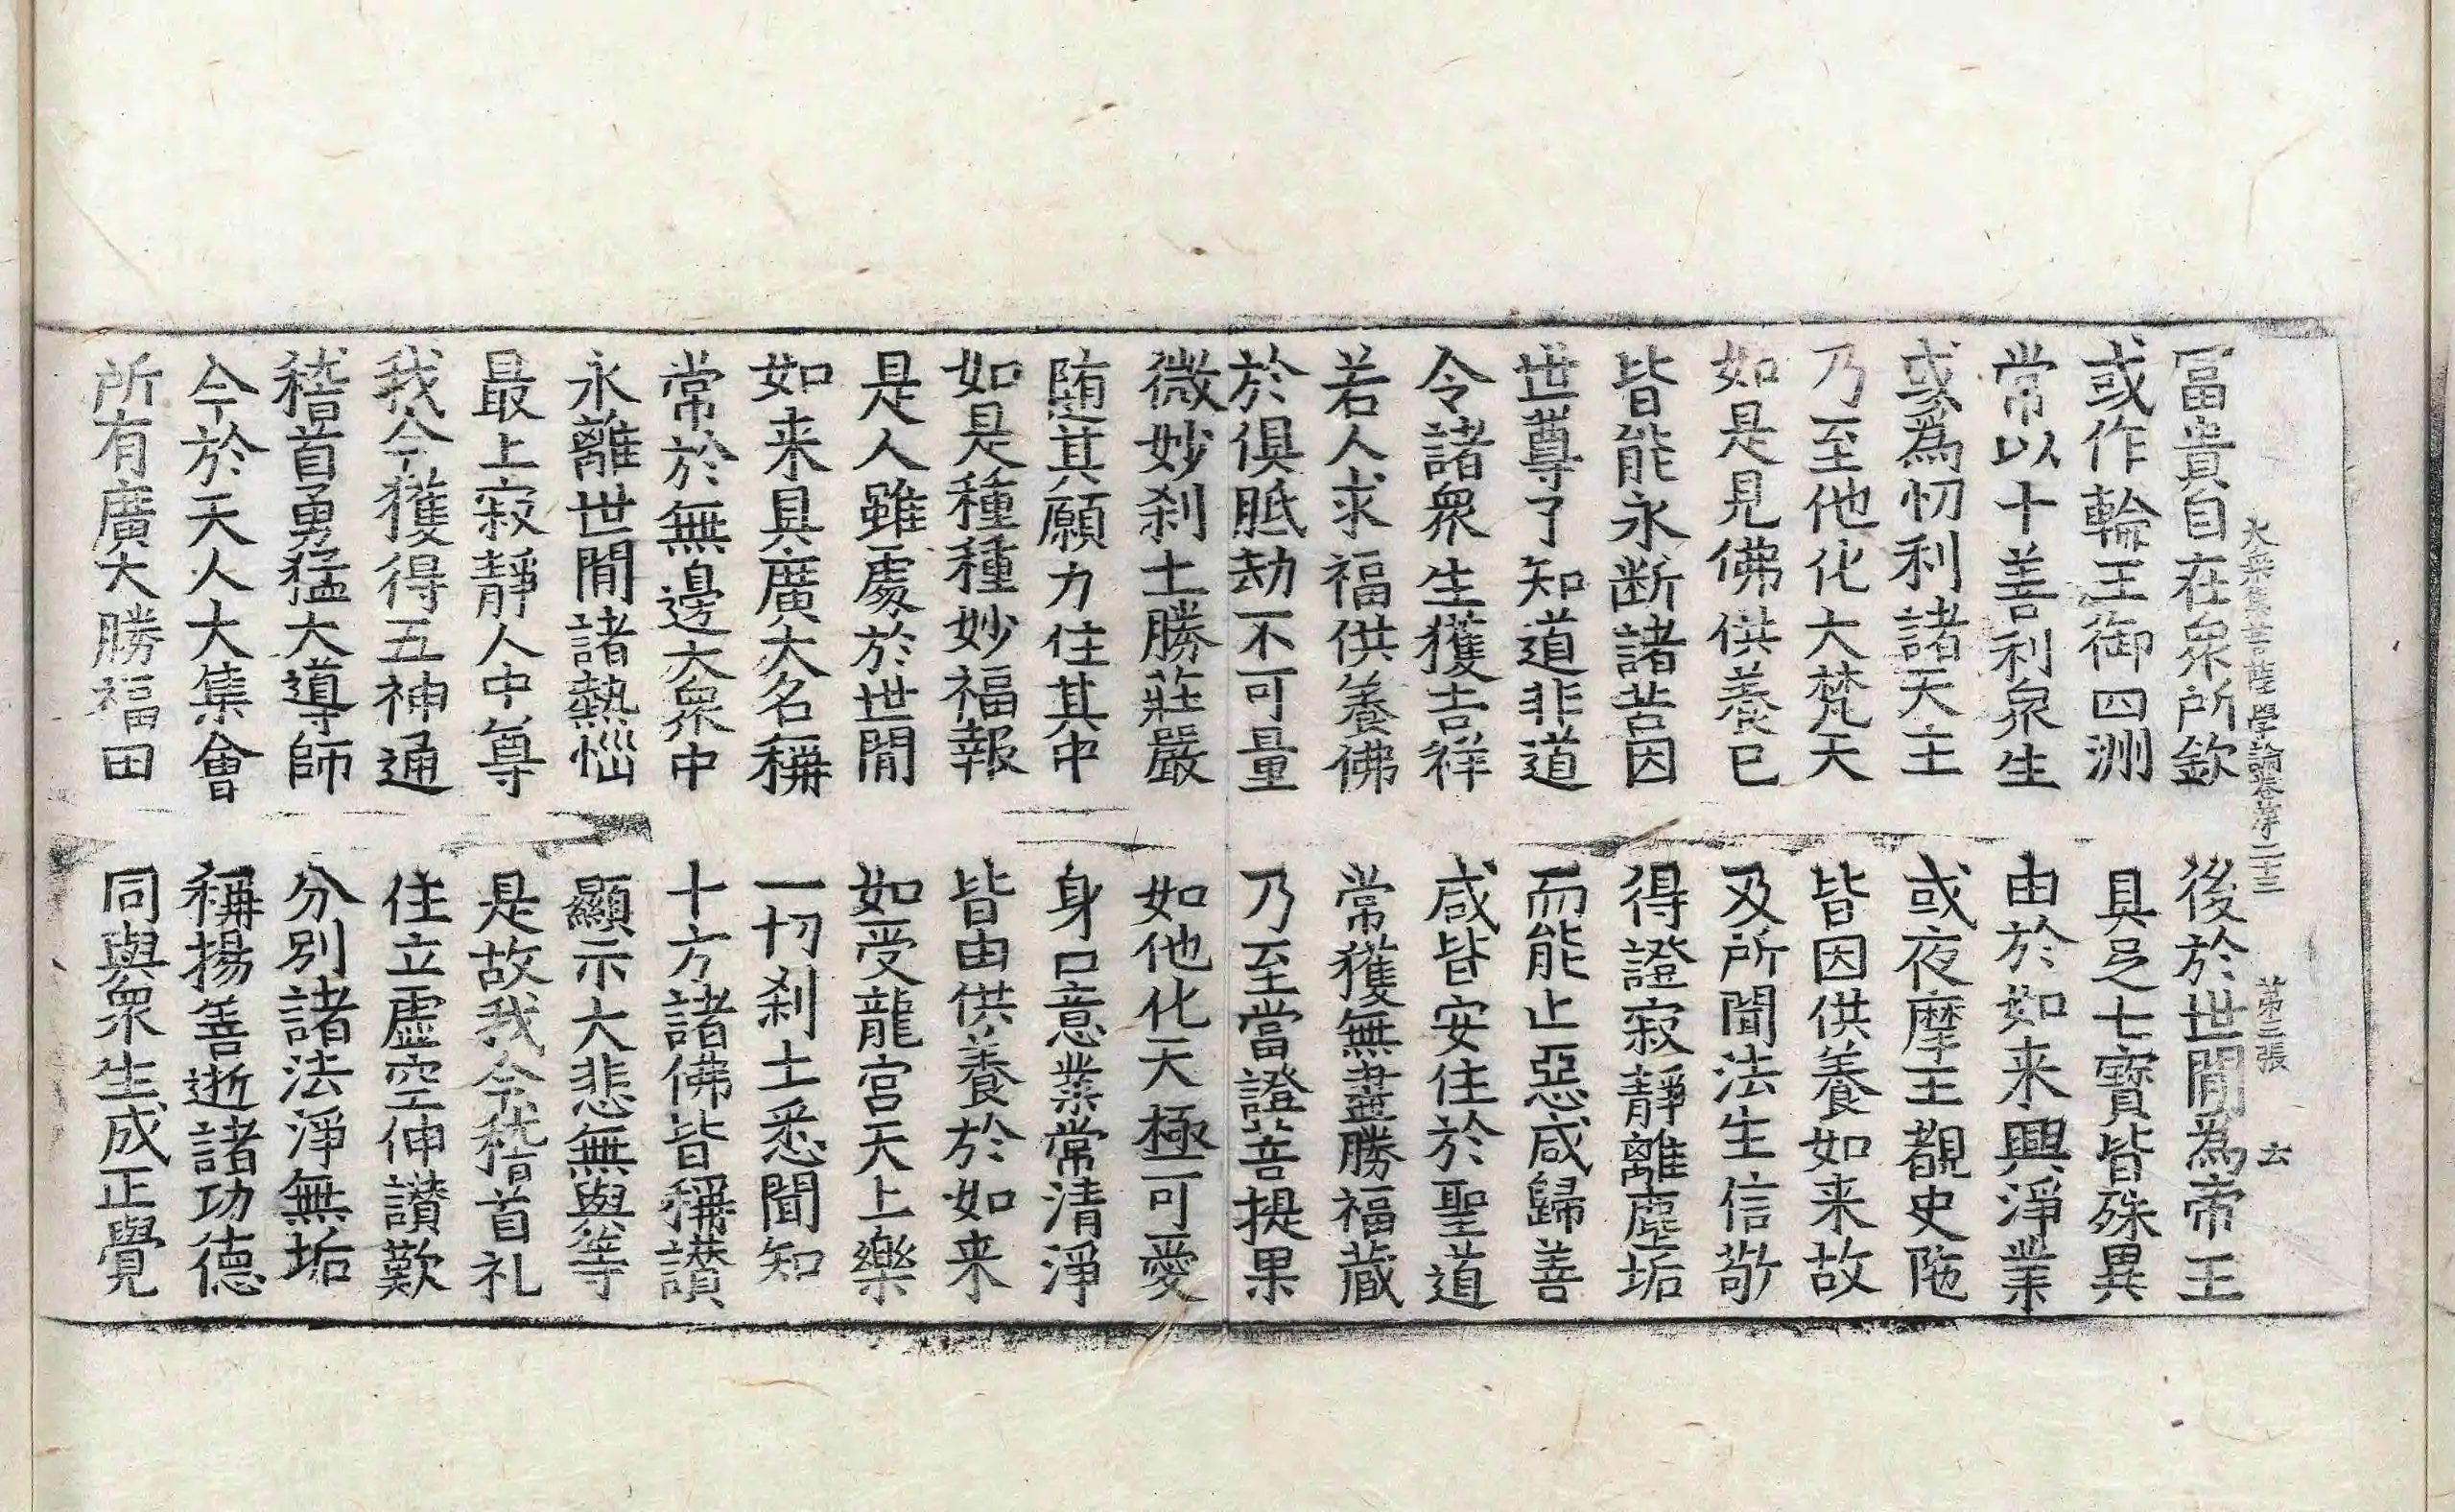 大乗集菩薩學論卷第二十三 第三張 云
冨貴自在衆所欽 後於世閒為帝王
或作輪王御四洲 具足七寶皆殊異
常以十善利衆生 由於如来興淨業
或爲忉利諸天主 或夜摩王覩史陁
乃至他化大梵天 皆因供養如来故
如是見佛供養已 及所聞法生信敬
皆能永断諸苦因 得證寂靜離塵垢
世尊了知道非道 而能止惡咸歸善
令諸衆生獲吉祥 咸皆安住於聖道
若人求福供養佛 常獲無盡勝福蔵
於俱胝劫不可量 乃至當證菩提果
微妙刹土勝莊嚴 如他化天極可愛
随其願力住其中 身口意業常清淨
如是種種妙福報 皆由供養於如来
是人雖處於世閒 如受龍宮天上樂
如来具廣大名稱 一切刹土悉聞知
常於無邊大衆中 十方諸佛皆稱讃
永離世閒諸熱惱 顯示大悲無與等
最上寂靜人中尊 是故我今稽首礼
我今獲得五神通 住立虛空伸讃歎
稽首勇猛大導師 分別諸法淨無垢
今於天人大集會 稱揚善逝諸功德
所有廣大勝福田 同與衆生成正覺